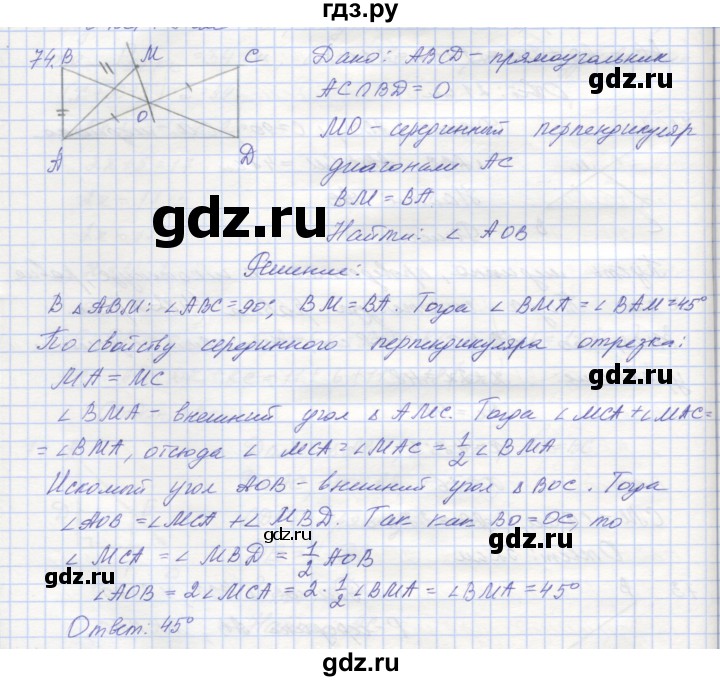 гдз.ру
74. B M C
Дано: ABCD – прямоугольник
AC∩BD = O
O
A D
MO – серединный перпендикуляр
диагонали AC
BM = BA
gdz.ru
Найти: ∠ AOB
Решение:
В △ABM: ∠ABC = 90°, BM = BA. Тогда ∠ BMA = ∠ BAM = 45°
По свойству серединного перпендикуляра отрезка:
MA = MC
∠ BMA – внешний угол △ AMC. Тогда ∠MCA + ∠MAC =
= ∠BMA, отсюда ∠ MCA = ∠MAC = 1/2 ∠ BMA
Искомый угол AOB – внешний угол △ BOC. Тогда
∠AOB = ∠MCA + ∠ MBD. Так как BO = OC, то
∠ MCA = ∠ MBD = 1/2 AOB
∠AOB = 2∠MCA = 2 · 1/2 ∠BMA = ∠BMA = 45°
Ответ: 45°
gdz.ru
gdz.ru
gdz.ru
gdz.ru
gdz.ru
gdz.ru
gdz.ru
gdz.ru